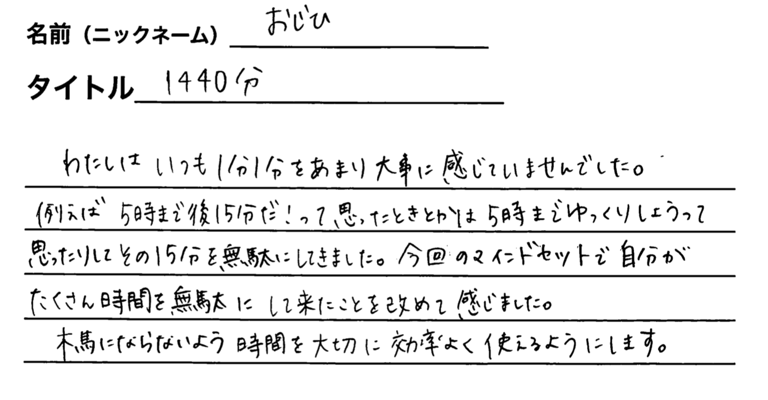 名前（ニックネーム） おじひ
タイトル 1440分
わたしは いつも1分1分をあまり大事に感じていませんでした。
例えば 5時まで後15分だ！って思ったときとかは5時までゆっくりしようって
思ったりしてその15分を無駄にしてきました。今回のマインドセットで自分が
たくさん時間を無駄にして来たことを改めて感じました。
木馬にならないよう時間を大切に効率よく使えるようにします。